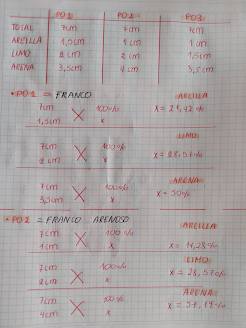 PO1 PO2 PO3
TOTAL 7cm 7cm 7cm
ARCILLA 1,5cm 1cm 1cm
LIMO 2cm 2cm 1,5cm
ARENA 3,5cm 4cm 5,5cm
• PO1 = FRANCO ARCILLA
7cm 100%
1,5cm x x = 21,42%
LIMO
7cm 100%
2cm x x = 28,57%
ARENA
7cm 100%
3,5cm x x = 50%
• PO2 = FRANCO ARENOSO
ARCILLA
7cm 100%
1cm x x = 14,28%
LIMO
7cm 100%
2cm x x = 28,57%
ARENA
7cm 100%
4cm x x = 57,14%